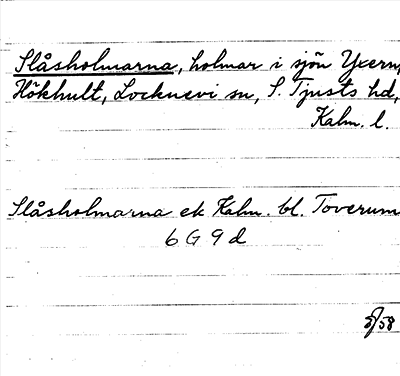 Slåsholmarna, holmar i sjön Yxern,
Hökhult, Locknevi sn, S. Tjusts hd,
Kalm. l.
Slåsholmarna ek Kalm. bl. Toverum
6 G 9 d
5/58